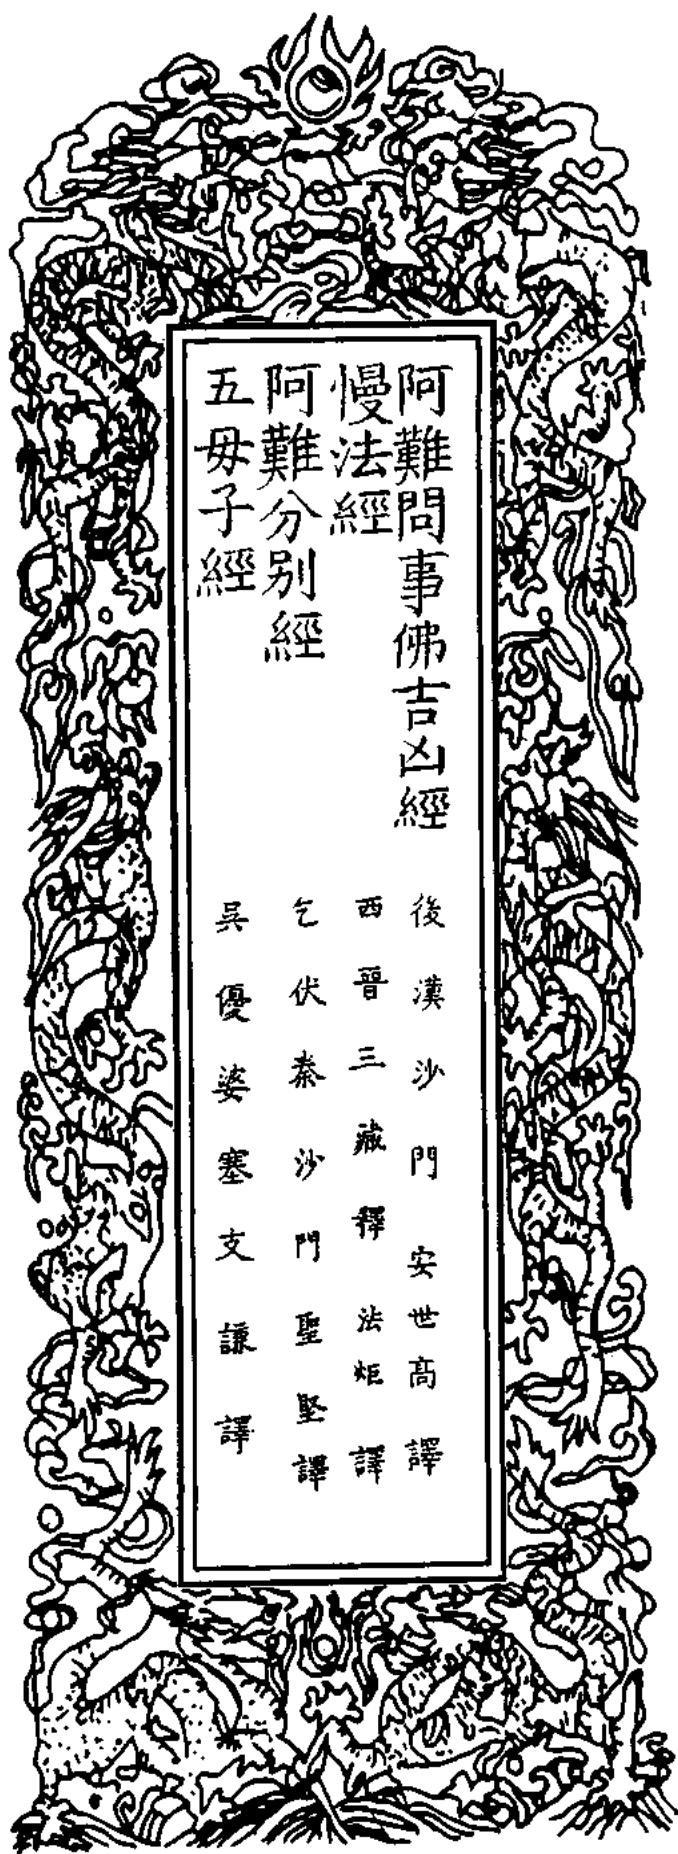 阿難問事佛吉凶經 後漢沙門 安世高 譯
慢法經 西晉三藏釋 法炬 譯
阿難分別經 乞伏秦沙門聖堅譯
五母子經 吳優婆塞支謙譯